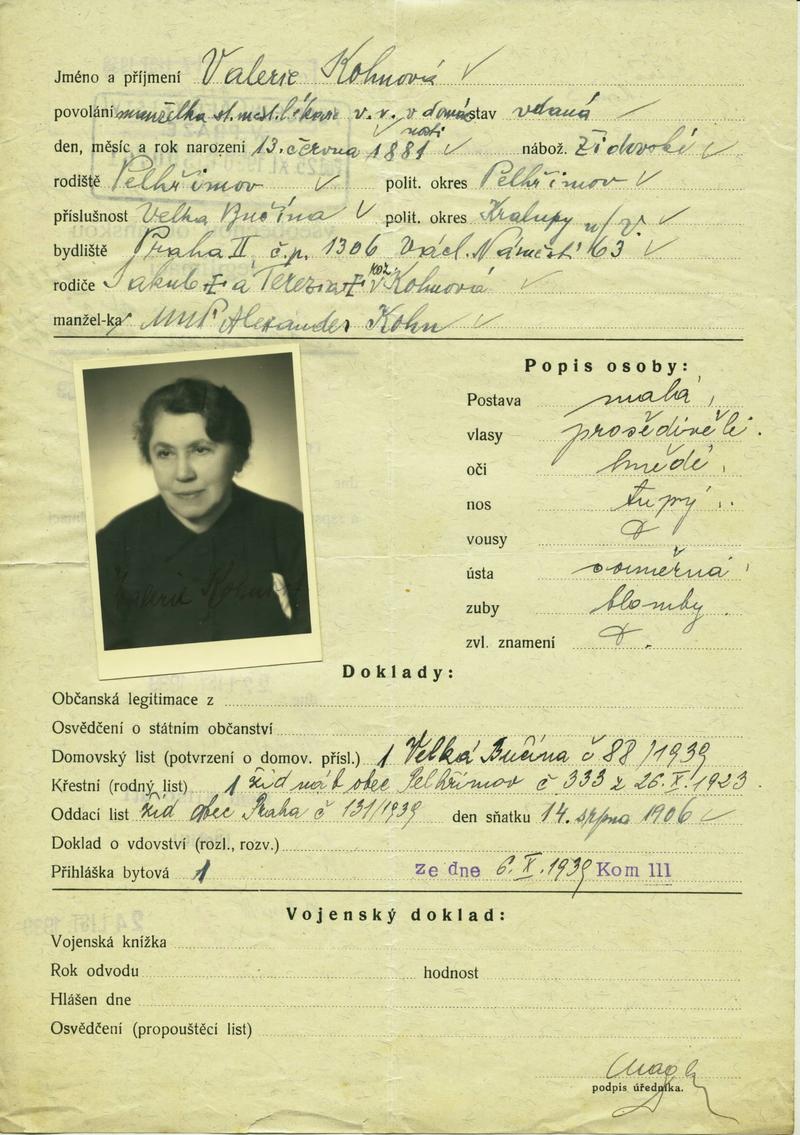 Jméno a příjmení Valerie Kohnová ✓
povolání manželka st. měst. lékaře v. v. v domác- stav vdaná
nosti
den, měsíc a rok narození 13. června 1881 ✓ nábož. Židovské ✓
rodiště Pelhřimov ✓ polit. okres Pelhřimov ✓
příslušnost Velká Bučina ✓ polit. okres Kralupy n/V. ✓
bydliště Praha II, č.p. 1306 Václ. Náměstí 63 ✓
rodiče Jakub ‡ a Terezia ‡ roz. Kohnová ✓
manžel-ka MUDr Alexander Kohn ✓
Popis osoby:
Postava malá,
vlasy prošedivělé.
oči hnědé,
nos tupý,
vousy
ústa souměrná,
zuby blomby.
zvl. znamení
Valerie Kohnová
Doklady:
Občanská legitimace z
Osvědčení o státním občanství
Domovský list (potvrzení o domov. přísl.) 1 Velká Bučina č 88/1939
Křestní (rodný list) 1 žid náb obec Pelhřimov č 333 z 26.X.1923.
Oddací list žid obec Praha č 131/1939 den sňatku 14. srpna 1906 ✓
Doklad o vdovství (rozl., rozv.)
Přihláška bytová 1 ze dne 6.X.1939 Kom III
Vojenský doklad:
Vojenská knížka
Rok odvodu hodnost
Hlášen dne
Osvědčení (propouštěcí list)
podpis úředníka.